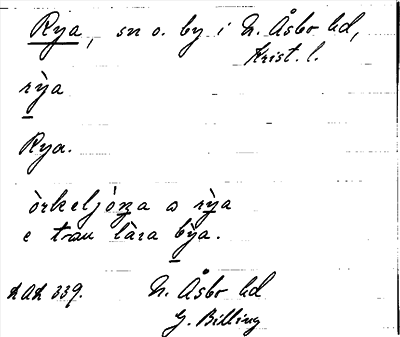 Rya, sn o. by i N. Åsbo hd,
Krist. l.
rỳa
Rya.
òrkeljòna a rỳa
e trau làra bỳa.
LAL 339. N. Åsbo hd
G. Billing